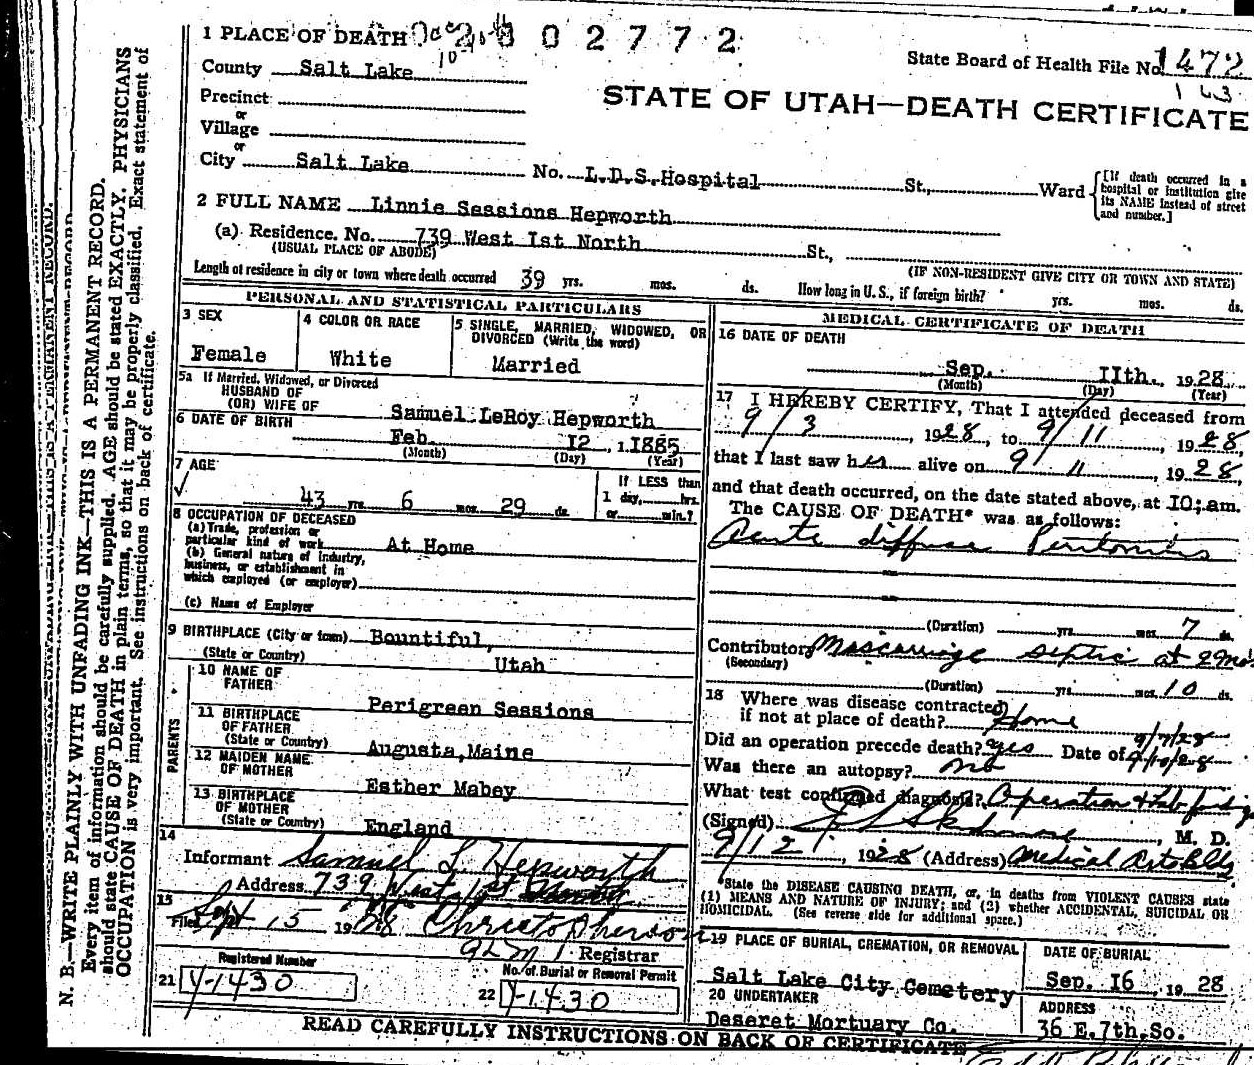 1 PLACE OF DEATH
0 2 7 7 2
State Board of Health File No. 1472
143
County Salt Lake
STATE OF UTAH—DEATH CERTIFICATE
Precinct
or
Village
or
City Salt Lake No. L.D.S.Hospital St., Ward
[If death occurred in a hospital or institution give its NAME instead of street and number.]
2 FULL NAME Linnie Sessions Hepworth
(a) Residence. No. 739 West Ist North St.,
(USUAL PLACE OF ABODE) (IF NON-RESIDENT GIVE CITY OR TOWN AND STATE)
Length of residence in city or town where death occurred 39 yrs. mos. ds. How long in U.S., if foreign birth? yrs. mos. ds.
PERSONAL AND STATISTICAL PARTICULARS
3 SEX
Female
4 COLOR OR RACE
White
5 SINGLE, MARRIED, WIDOWED, OR DIVORCED (Write the word)
Married
5a If Married, Widowed, or Divorced
HUSBAND OF
(OR) WIFE OF Samuel LeRoy Hepworth
6 DATE OF BIRTH Feb. I2 , 1.I885
(Month) (Day) (Year)
7 AGE
43 yrs. 6 mos. 29 ds.
If LESS than
1 day, hrs.
or min.?
8 OCCUPATION OF DECEASED
(a) Trade, profession or
particular kind of work At Home
(b) General nature of Industry,
business, or establishment in
which employed (or employer)
(c) Name of Employer
9 BIRTHPLACE (City or town) Bountiful,
(State or Country) Utah
PARENTS
10 NAME OF
FATHER Perigreen Sessions
11 BIRTHPLACE
OF FATHER
(State or Country) Augusta,Maine
12 MAIDEN NAME
OF MOTHER Esther Mabey
13 BIRTHPLACE
OF MOTHER
(State or Country) England
14
Informant Samuel L. Hepworth
Address 739 West 1st North
15
Filed Sept 15 1928 Christopherson
Registrar
Registered Number
21 Y-1430
No. of Burial or Removal Permit
22 Y-1430
MEDICAL CERTIFICATE OF DEATH
16 DATE OF DEATH
Sep. IIth. , 1928
(Month) (Day) (Year)
17 I HEREBY CERTIFY, That I attended deceased from
9/3 , 1928, to 9/11 , 1928,
that I last saw her alive on 9 11 , 1928,
and that death occurred, on the date stated above, at I0;am.
The CAUSE OF DEATH* was as follows:
Acute diffuse Peritonitis
(Duration) yrs. mos. 7 ds.
Contributory Miscarriage septic at 2 mos.
(Secondary)
(Duration) yrs. mos. 10 ds.
18 Where was disease contracted
if not at place of death? Home
Did an operation precede death? yes Date of 9/7/28
9/10/28
Was there an autopsy? no
What test confirmed diagnosis? Operation
(Signed) M. D.
9/12 , 1928 (Address) Medical Arts Bldg
*State the DISEASE CAUSING DEATH, or, in deaths from VIOLENT CAUSES state
(1) MEANS AND NATURE OF INJURY; and (2) whether ACCIDENTAL, SUICIDAL OR
HOMICIDAL. (See reverse side for additional space.)
19 PLACE OF BURIAL, CREMATION, OR REMOVAL
Salt Lake City Cemetery
DATE OF BURIAL
Sep. I6 , 19 28
20 UNDERTAKER
Deseret Mortuary Co.
ADDRESS
36 E.7th.So.
READ CAREFULLY INSTRUCTIONS ON BACK OF CERTIFICATE
N. B.—WRITE PLAINLY WITH UNFADING INK—THIS IS A PERMANENT RECORD.
Every item of information should be carefully supplied. AGE should be stated EXACTLY. PHYSICIANS
should state CAUSE OF DEATH in plain terms, so that it may be properly classified. Exact statement of
OCCUPATION is very important. See instructions on back of certificate.